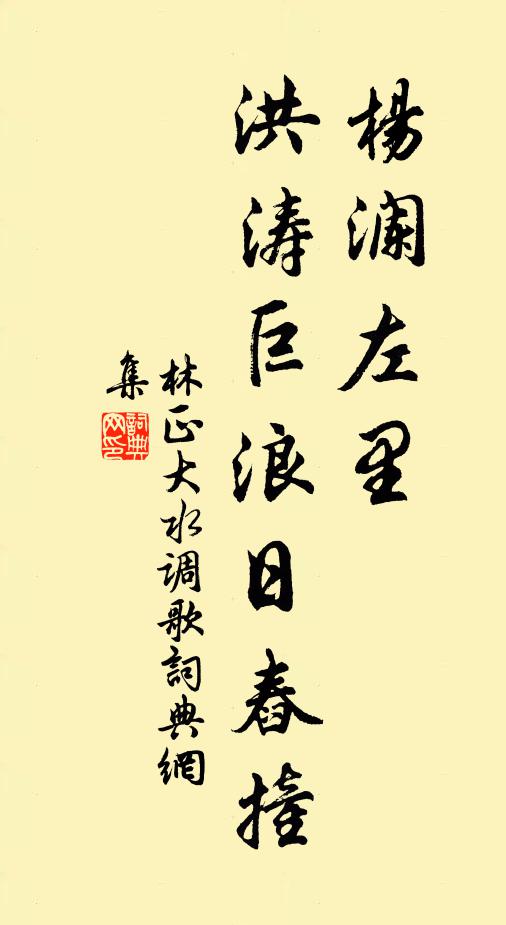 楊瀾左里
洪涛巨浪日舂撞
林正大水调歌詞典網
集
詞典网印